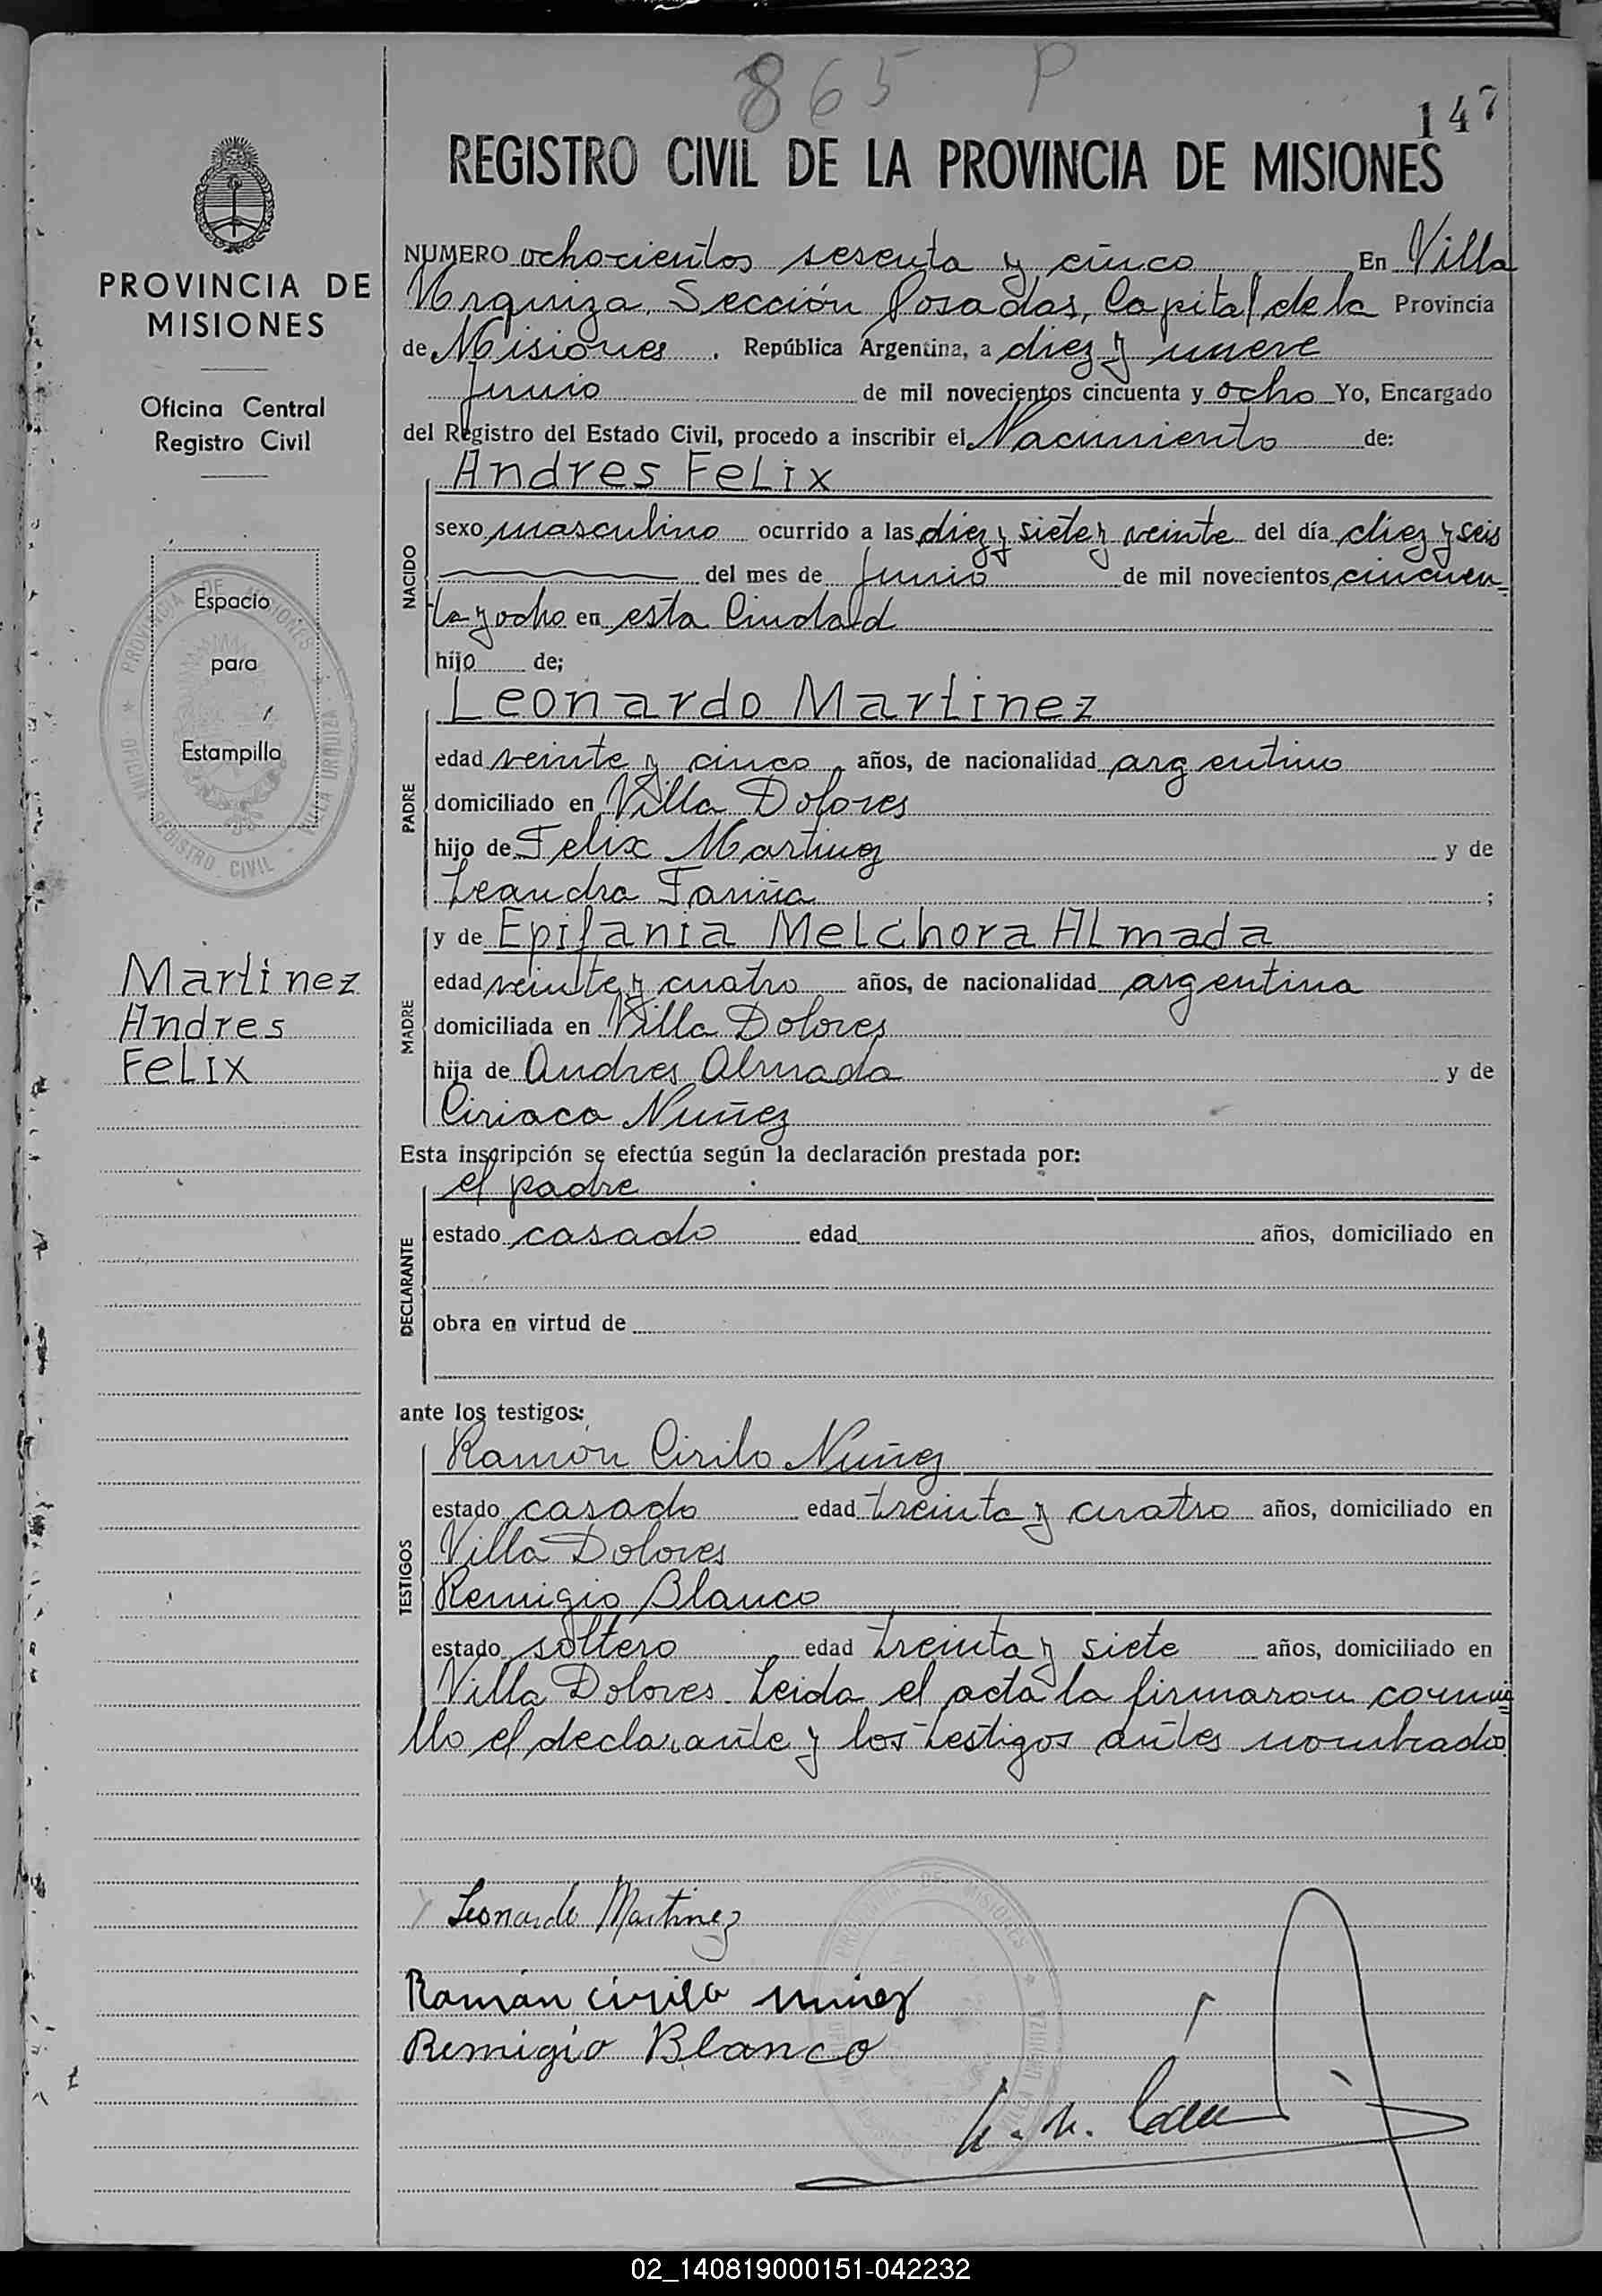 865 P
147
REGISTRO CIVIL DE LA PROVINCIA DE MISIONES
PROVINCIA DE
MISIONES
Oficina Central
Registro Civil
Espacio
para
Estampilla
PROVINCIA DE MISIONES
OFICINA REGISTRO CIVIL - VILLA URQUIZA
Martinez
Andres
Felix
NUMERO ochocientos sesenta y cinco En Villa
Urquiza, Sección Posadas, Capital de la Provincia
de Misiones . República Argentina, a diez y nueve
Junio de mil novecientos cincuenta y ocho Yo, Encargado
del Registro del Estado Civil, procedo a inscribir el Nacimiento de:
NACIDO
Andres Felix
sexo masculino ocurrido a las diez y siete y veinte del día diez y seis
del mes de Junio de mil novecientos cincuen=
ta y ocho en esta Ciudad
hijo de;
PADRE
Leonardo Martinez
edad veinte y cinco años, de nacionalidad argentino
domiciliado en Villa Dolores
hijo de Felix Martinez y de
Leandra Fariña ;
MADRE
y de Epifania Melchora Almada
edad veinte y cuatro años, de nacionalidad argentina
domiciliada en Villa Dolores
hija de Andres Almada y de
Ciriaca Nuñez
Esta inscripción se efectúa según la declaración prestada por:
DECLARANTE
el padre
estado casado edad años, domiciliado en
obra en virtud de
ante los testigos:
TESTIGOS
Ramón Cirilo Nuñez
estado casado edad treinta y cuatro años, domiciliado en
Villa Dolores
Remigio Blanco
estado soltero edad treinta y siete años, domiciliado en
Villa Dolores. Leida el acta la firmaron conmi=
llo el declarante y los testigos antes nombrados
Leonardo Martinez
Ramón cirilo nuñez
Remigio Blanco
02_140819000151-042232